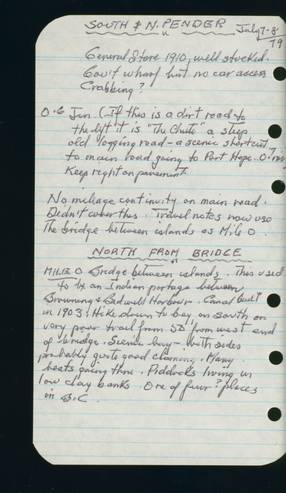 SOUTH & N. PENDER July 7-8
79
General Store 1910, well stocked.
Gov't wharf but no car access
Crabbing?
0.6 Jin. (If this is a dirt road to
the left it is "The Chute" a steep
old logging road - a scenic shortcut
to main road going to Port Hope. 0.7 mi
Keep right on pavement
No mileage continuity on main road.
Didn't cover this. Travel notes now use
The bridge between islands as Mile 0
NORTH FROM BRIDGE
MILE 0 Bridge between islands. This used
to be an Indian portage between
Browning & Bedwell Harbour. Canal built
in 1903! Hike down to bay on south on
very poor trail from 50' from west end
of bridge. Scenic bay - both sides
probably quite good clamming. Many
boats going thru. Piddocks living in
low clay banks. One of four? places
in B.C.